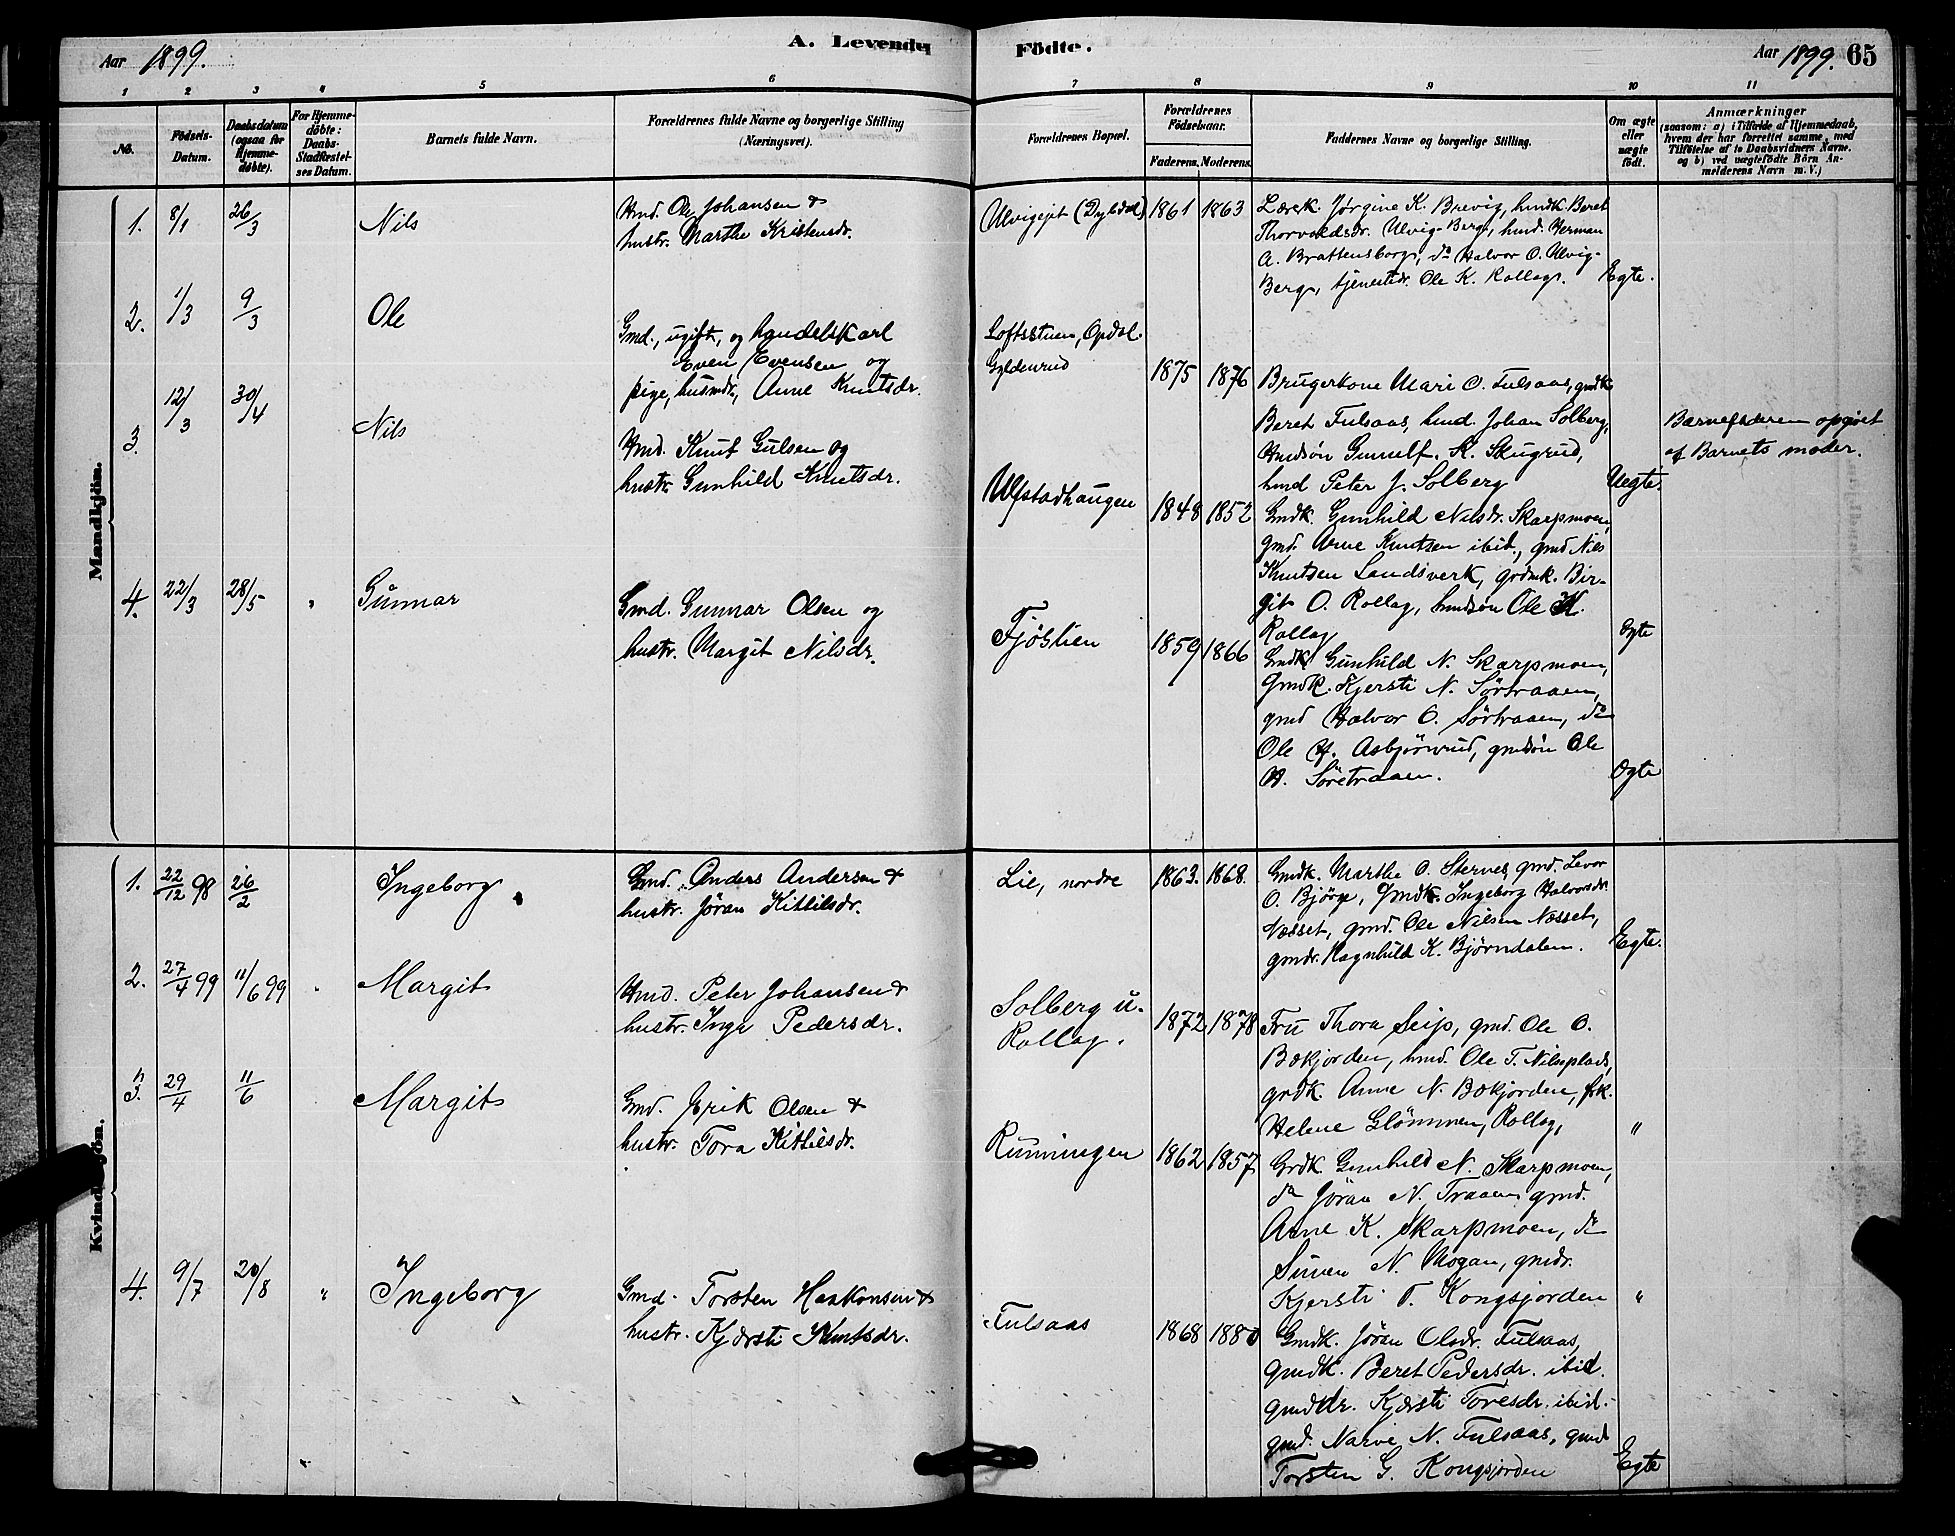 Aar 1899. A. Levende Födte. Aar 1899. 65
1 2 3 4 5 6 7 8 9 10 11
No.
Födsels-
Datum.
Daabsdatum
(ogsaa for
Hjemme-
döbte).
For Hjemme-
döbte:
Daabs-
Stadfæstel-
ses Datum.
Barnets fulde Navn.
Forældrenes fulde Navne og borgerlige Stilling
(Næringsvei).
Forældrenes Bopæl.
Forældrenes
Födselsaar.
Faderens. Moderens.
Faddernes Navne og borgerlige Stilling.
Om ægte
eller
uægte
födt.
Anmærkninger
(saasom: a) i Tilfælde af Hjemmedaab,
hvem der har forrettet samme, med
Tilföielse af to Daabsvidners Navne.
og b) ved uægtefödte Börn An-
melderens Navn m. V.)
Mandkjön.
1. 8/1 26/3 Nils
Hmd. Ole Johansen &
hustr. Marthe Kristensdr.
Ulvigejet (Dyledal) 1861 1863
Lærerk. Jørgine K. Brevig, hmdk Beret
Thorvaldsdr. Ulvig-Berg, hmd. Herman
A. Brattensborg, do Halvor O. Ulvig-
Berg, tjenestdr. Ole K. Rollag. Egte.
2. 1/3 9/3 Ole
Gmd., ugift, og handelskarl
Even Evensen og
pige, husmdr, Anne Knutsdr.
Loftsstuen, Opdal.
Gyldenrud 1875 1876
Brugerkone Mari O. Fulsaas, gmdk
Beret Fulsaas, hmd. Johan Solberg,
Hmdsön Gunnulf. K. Skugrud,
hmd Peter J. Solberg Uegte.
Barnefaderen opgivet
af Barnets moder.
3. 12/3 30/4 Nils
Hmd. Knut Gulsen og
hustr. Gunhild Knutsdr.
Ulfstadhaugen 1848 1852
Gmdk. Gunhild Nilsdr. Skarpmoen,
gmd. Arne Knutsen ibid., gmd Nils
Knutsen Landsverk, grdmk. Bir-
git O. Rollag, hmdsøn Ole K.
Rollag Egte
4. 22/3 28/5 " Gunnar
Gmd. Gunnar Olsen og
hustr. Margit Nilsdr.
Fjøslien 1859 1866
Gmdk. Gunhild N. Skarpmoen,
Gmdk. Kjersti N. Sörtraaen,
gmd Halvor O. Sörtraaen, do
Ole H. Asbjörnrud, gmdsön Ole
H. Söretraaen. Egte
Kvindekjön.
1. 22/12 98 26/2 Ingeborg
Gmd. Anders Andersen &
hustr. Jöran Kittilsdr.
Lie, nordre 1863. 1868.
Gmdk. Marthe O. Sternes, gmd. Levor
O. Bjöge, Gmdk. Ingeborg Halvorsdr
Næsset, gmd. Ole Nilsen Næsset,
gmdr. Ragnhild K. Björndalen. Egte.
2. 27/4 99 11/6 99 Margit
Hmd. Peter Johansen &
hustr. Inga Pedersdr.
Solberg u.
Rollag. 1872 1878
Fru Thora Seip, gmd. Ole O.
Bækjorden, hmd. Ole T. Nilsplads,
grdk. Anne N. Bækjorden, frk.
Helene Glömmen, Rollag, "
3. 29/4 11/6 Margit
Gmd. Erik Olsen &
hustr. Tora Kittilsdr.
Runningen 1862 1857
Grdk. Gunhild N. Skarpmoen,
do Jöran N. Traaen, gmd.
Arne K. Skarpmoen, do
Simen N. Mogan, gmdr.
Kjersti T. Kongsjorden "
4. 9/7 20/8 " Ingeborg
Gmd. Torsten Haakonsen &
hustr. Kjersti Knutsdr.
Fulsaas 1868 1880
Gmdk. Jöran Olsdr. Fulsaas,
gmdk. Beret Pedersdr. ibid.
gmddr. Kjersti Toresdr. ibid.
gmd. Narve N. Fulsaas, gmd
Torsten G. Kongsjorden Egte